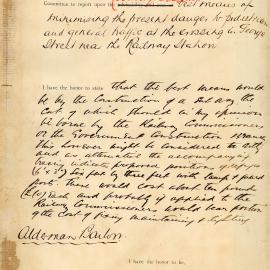 Committee to report upon the best means of
minimising the present danger to pedestrians
and general traffic at the crossing in George
Street near the Railway Station
I have the honor to state that the best means would
be by the construction of a Subway the
cost of which should in my opinion
be borne by the Railway Commissioners
or the Government Construction
This however might be considered
and as alternative the accompanying
tracing indicates proposed position of refuges
(6 x 3) six feet by three feet with lamp & guard
posts. These would cost about ten pound
each and probably if applied to the
Railway Commissioners would bear portion
of the Cost of fixing maintaining & lighting
Alderman Barlow
I have the honor to be,